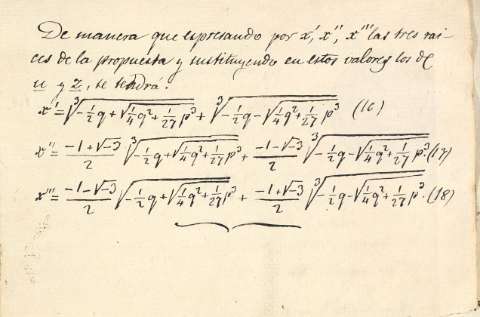 De manera que espresando por x', x'', x''' las tres rai-
ces de la propuesta y sustituyendo en estos valores los de
u y z, se tendrá:
x' = ∛(-1/2 q + √(1/4 q² + 1/27 p³)) + ∛(-1/2 q - √(1/4 q² + 1/27 p³)) (16)
x'' = (-1+√-3)/2 ∛(-1/2 q + √(1/4 q² + 1/27 p³)) + (-1-√-3)/2 ∛(-1/2 q - √(1/4 q² + 1/27 p³)). (17)
x''' = (-1-√-3)/2 ∛(-1/2 q + √(1/4 q² + 1/27 p³)) + (-1+√-3)/2 ∛(-1/2 q - √(1/4 q² + 1/27 p³)). (18)